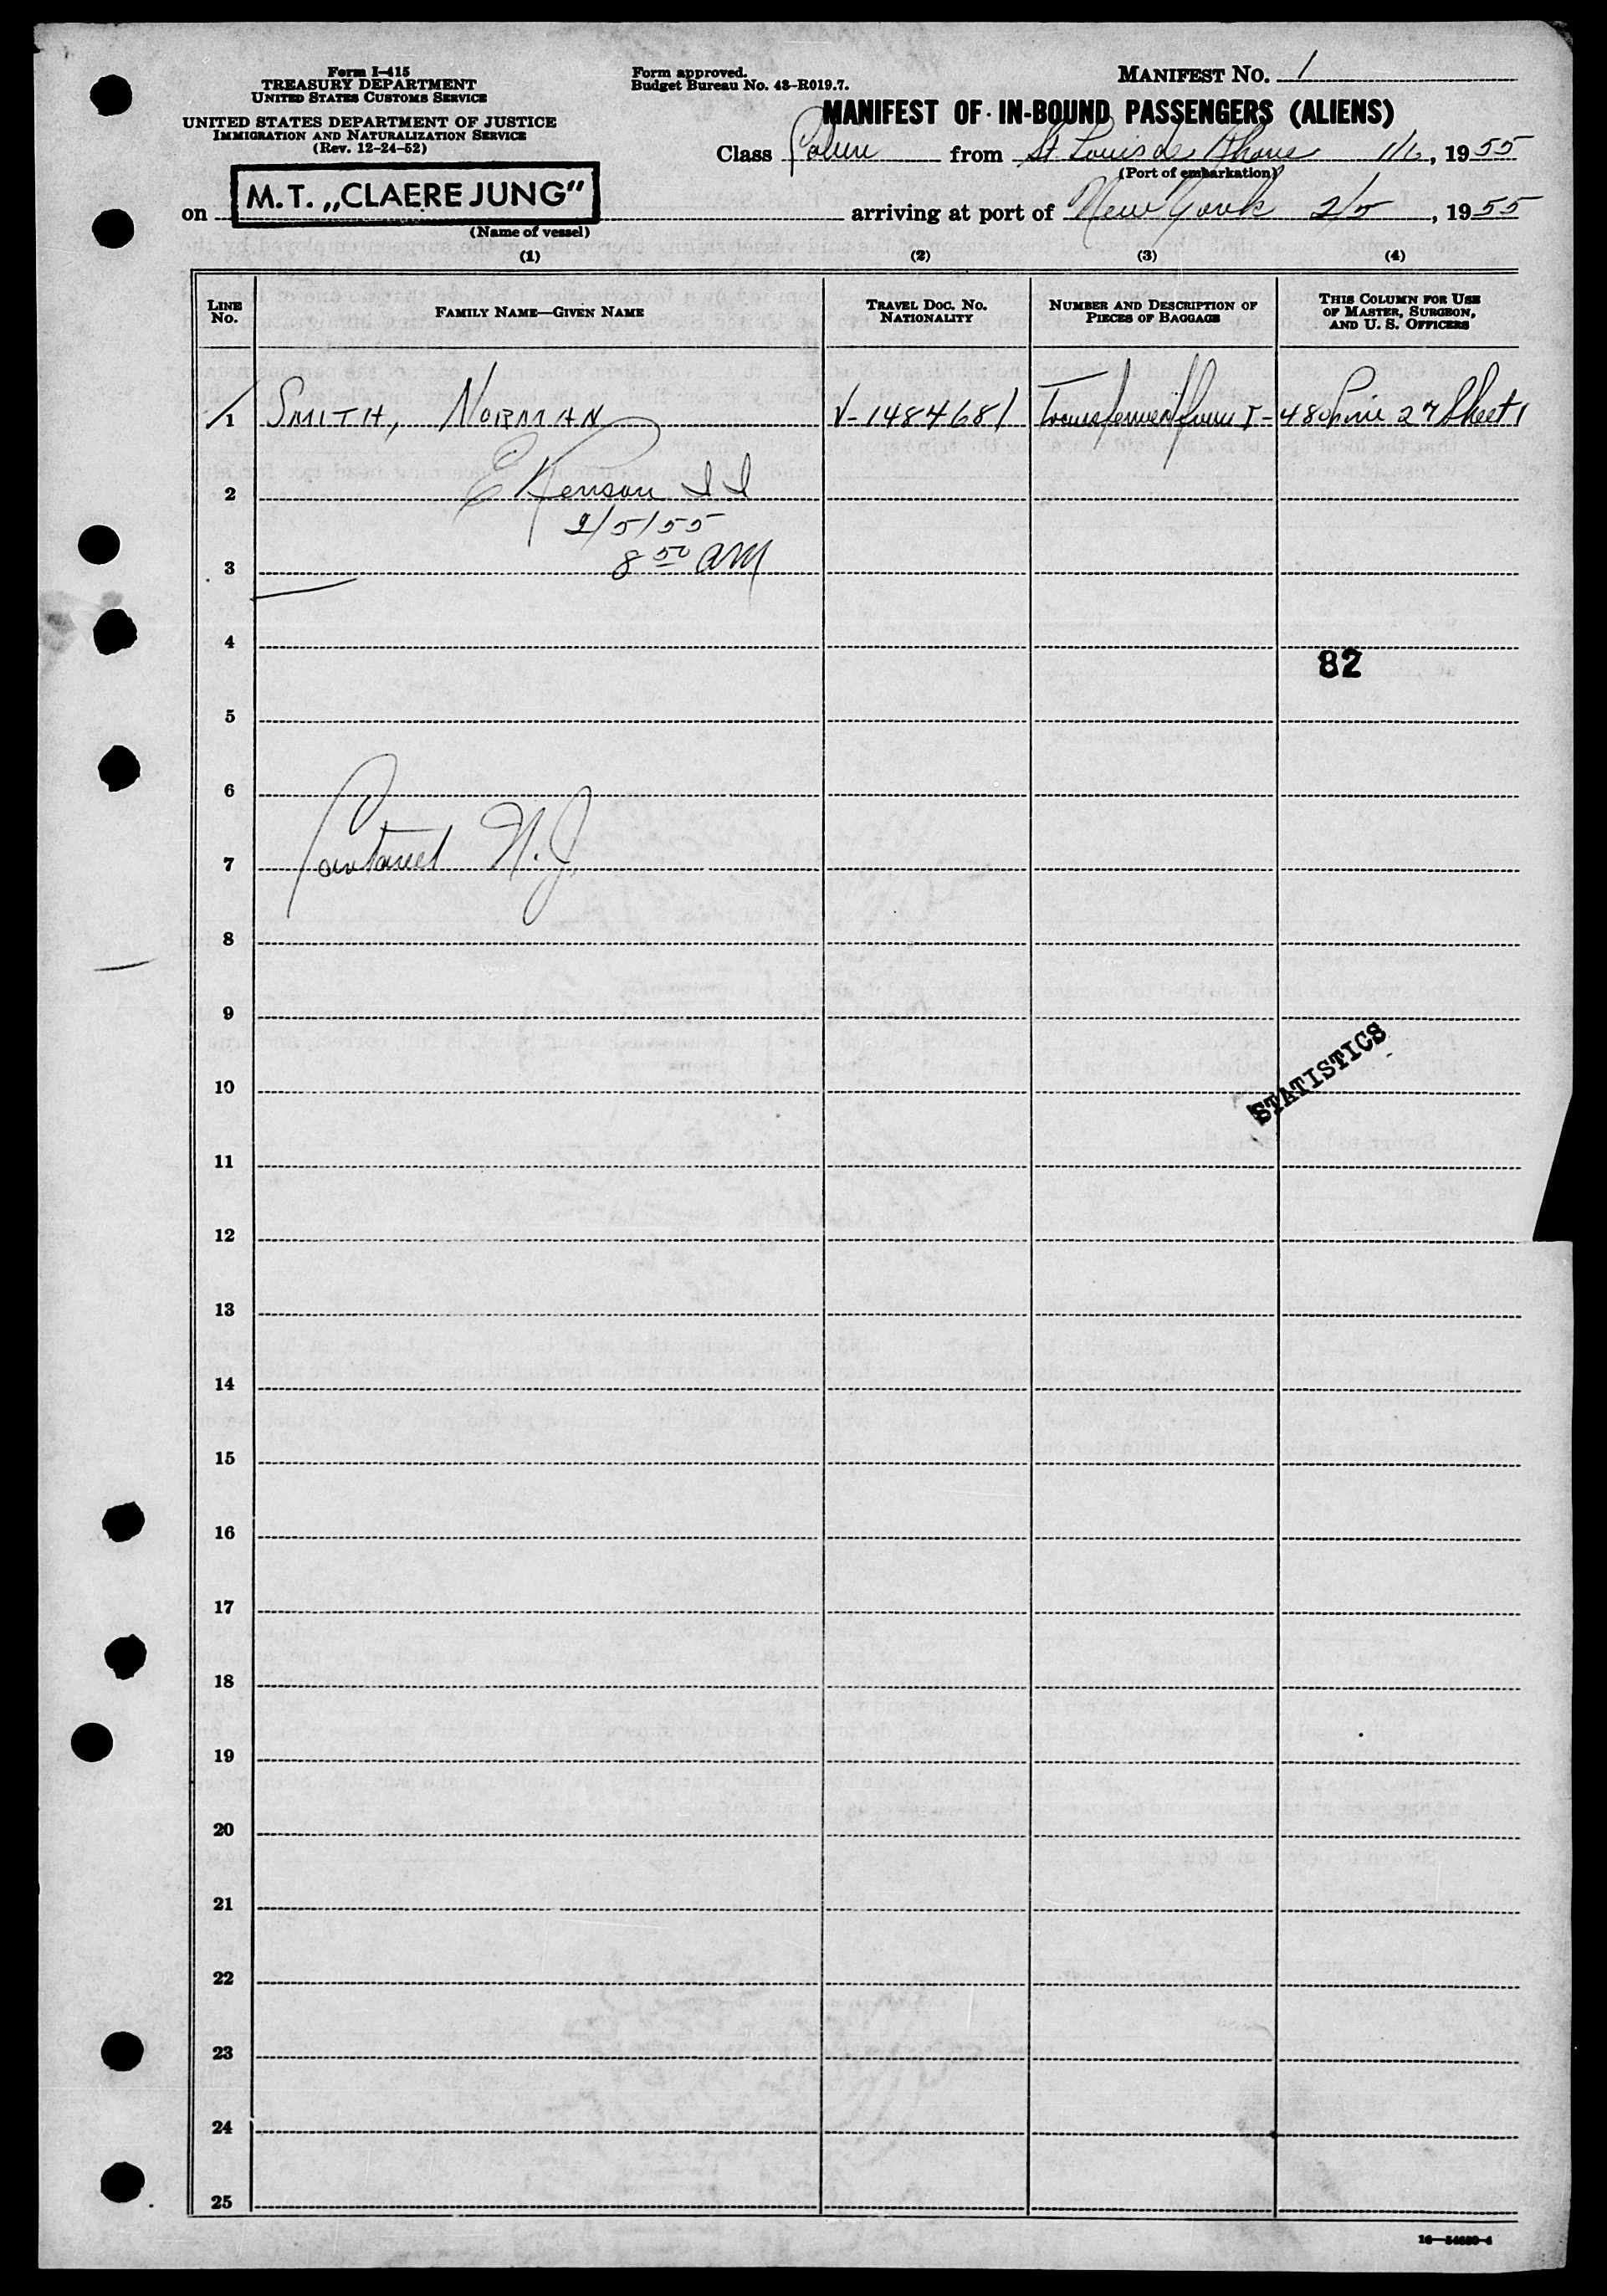 Form I-415
TREASURY DEPARTMENT
UNITED STATES CUSTOMS SERVICE
UNITED STATES DEPARTMENT OF JUSTICE
IMMIGRATION AND NATURALIZATION SERVICE
(Rev. 12-24-52)
Form approved.
Budget Bureau No. 43-R019.7.
MANIFEST NO. 1
MANIFEST OF IN-BOUND PASSENGERS (ALIENS)
Class from St. Louis de Rhone 1/6, 1955
(Port of embarkation)
on M.T. „CLAERE JUNG” arriving at port of New York 2/5, 1955
(Name of vessel)
(1) (2) (3) (4)
LINE NO. FAMILY NAME—GIVEN NAME TRAVEL DOC. NO. NATIONALITY NUMBER AND DESCRIPTION OF PIECES OF BAGGAGE THIS COLUMN FOR USE OF MASTER, SURGEON, AND U. S. OFFICERS
1 SMITH, NORMAN V-1484681 Transferred from I-480 Line 27 Sheet 1
2 E
2/5/55
3 8 50 AM
4
82
5
6
7 N.J.
8
9
STATISTICS
10
11
12
13
14
15
16
17
18
19
20
21
22
23
24
25